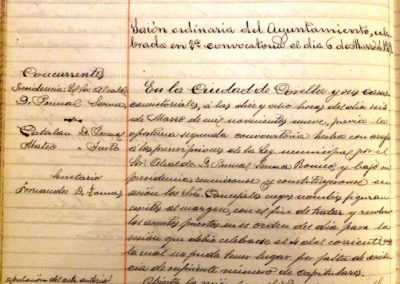 Sesión ordinaria del Ayuntamiento, cele
brada en 2ª convocatoria el dia 6 de Marzo de
Concurrentes
Presidencia: El Sr. Alcalde
D. Pascual Serra
Catalan D. Pascual
Mateo " Justo
Secretario
Fernandez D. Tomas
aprobación del acta anterior
En la Ciudad de Novelda y sus casas
consistoriales, a las diez y ocho horas del dia seis
de Marzo de mil novecientos nueve, previa la
oportuna segunda convocatoria hecha con arreglo
a las prescripciones de la Ley municipal por el
Sr. Alcalde D. Pascual Serra Romeo y bajo su
presidencia, reunieronse y constituyeronse en
sesión los Sres Concejales cuyos nombres figuran
escritos al margen, con el fin de tratar y resolver
los asuntos puestos en el orden del dia para la
sesión que debió celebrarse el seis del corriente
la cual no pudo tener lugar por falta de asisten
cia de suficiente número de capitulares.
Abierta la